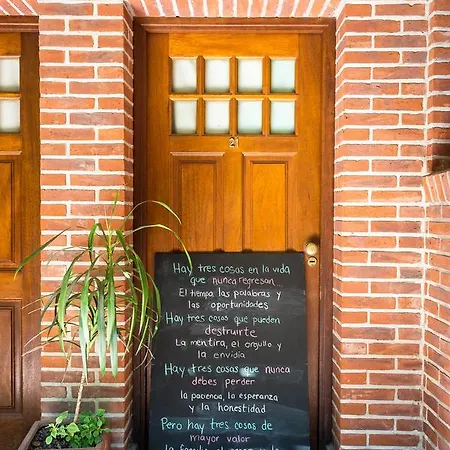 2
Hay tres cosas en la vida
que nunca regresan
El tiempo las palabras y
las oportunidades
Hay tres cosas que pueden
destruirte
La mentira, el orgullo y
la envidia
Hay tres cosas que nunca
debes perder
la paciencia, la esperanza
y la honestidad
Pero hay tres cosas de
mayor valor
la familia el